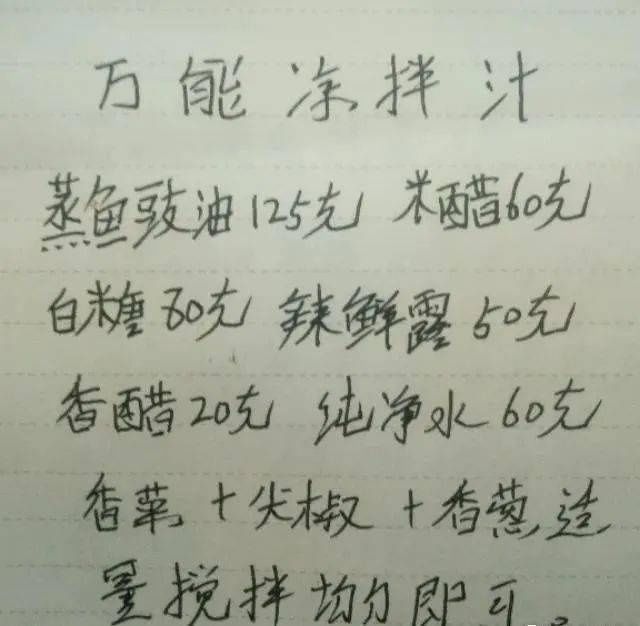 万能凉拌汁
蒸鱼豉油125克 米醋60克
白糖80克 辣鲜露50克
香醋20克 纯净水60克
香菜+尖椒+香葱适
量搅拌均匀即可。